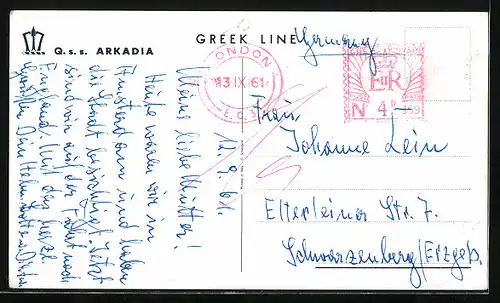 Q.s.s. ARKADIA
GREEK LINE
Germany
LONDON
13 IX 61
E.C.
E II R
N 4D
12. 9. 61.
Meine liebe Mutter!
Heute waren wir in
Amsterdam und haben
die Stadt besichtigt. Jetzt
sind wir auf der Fahrt nach
England. Und das herz.
Grüßen Dein Helm.
Frau
Johanne Lein
Elterleiner Str. 7.
Schwarzenberg/Erzgeb.